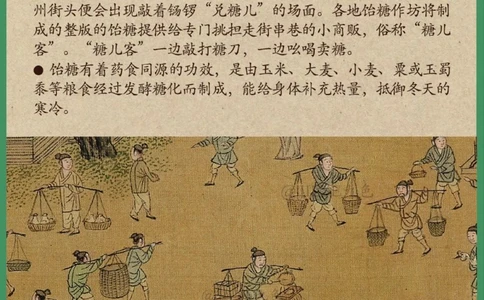 州街头便会出现敲着锡锣“兑糖儿”的场面。各地饴糖作坊将制
成的整版的饴糖提供给专门挑担走街串巷的小商贩，俗称“糖儿
客”。“糖儿客”一边敲打糖刀，一边吆喝卖糖。
● 饴糖有着药食同源的功效，是由玉米、大麦、小麦、粟或玉蜀
黍等粮食经过发酵糖化而制成，能给身体补充热量，抵御冬天的
寒冷。